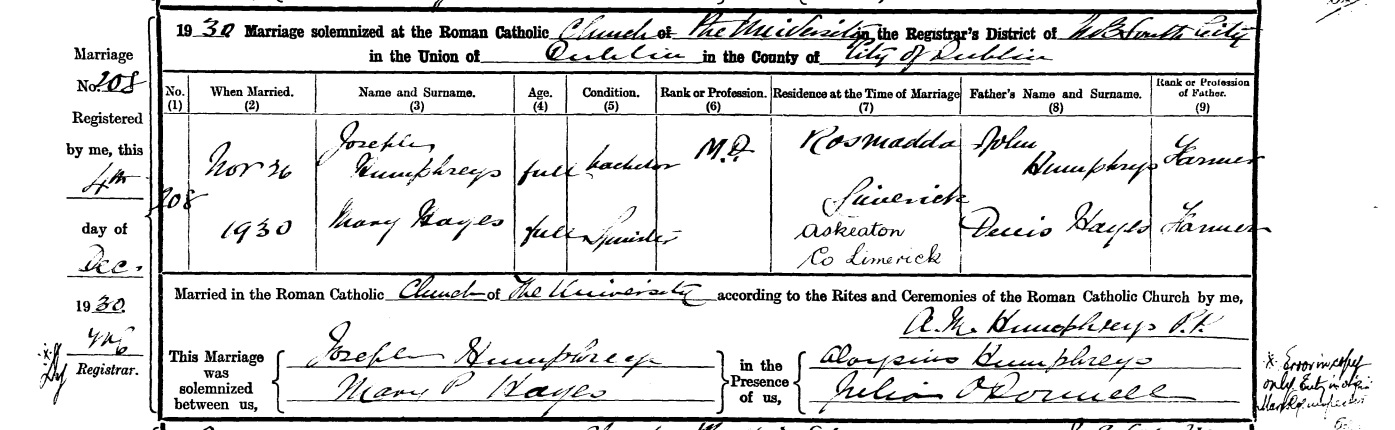 1930 Marriage solemnized at the Roman Catholic Church of The University in the Registrar's District of No 3 South City
in the Union of Dublin in the County of City of Dublin
Marriage
No. 208
Registered
by me, this
4th
day of
Dec.
1930.
Registrar.
No. (1)
When Married. (2)
Name and Surname. (3)
Age. (4)
Condition. (5)
Rank or Profession. (6)
Residence at the Time of Marriage (7)
Father's Name and Surname. (8)
Rank or Profession of Father. (9)
208
Nov 26
1930
Joseph
Humphreys
full
bachelor
M.D.
Rosmadda
Limerick
John
Humphreys
Farmer
Mary Hayes
full
Spinster
Askeaton
Co Limerick
Denis Hayes
Farmer
Married in the Roman Catholic Church of The University according to the Rites and Ceremonies of the Roman Catholic Church by me,
A.M. Humphreys P.P.
This Marriage
was
solemnized
between us,
Joseph Humphreys
Mary P Hayes
in the
Presence
of us,
Aloysius Humphreys
Julia O'Donnell
x Error in copy
only. Entry in